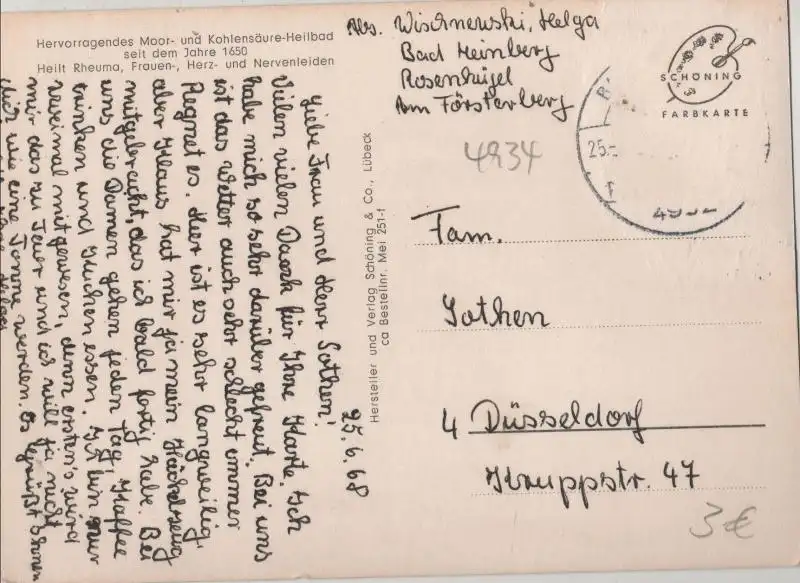 Hervorragendes Moor- und Kohlensäure-Heilbad
seit dem Jahre 1650
Heilt Rheuma, Frauen-, Herz- und Nervenleiden
25.6.68
Liebe Frau und Herr Gothen!
Vielen vielen Dank für Ihre Karte. Ich
habe mich so sehr darüber gefreut. Bei uns
ist das Wetter auch sehr schlecht immer
Regnet es. Hier ist es sehr langweilig,
aber Klaus hat mir ja mein Häckelzeug
mitgebracht, das ich bald fertig habe. Bei
uns die Damen gehen jeden Tag, Kaffee
trinken und Kuchen essen. Ich bin nur
zweimal mitgewesen, denn ersten's wird
mir das zu Teuer und ich will ja nicht
dick wie eine Tonne werden. Es grüßt Ihnen
Helga
Hersteller und Verlag Schöning & Co., Lübeck
ca Bestellnr. Mei 251-f
Abs. Wischnewski, Helga
Bad Meinberg
Rosenhügel
Am Försterberg
4934
SCHÖNING
FARBKARTE
25.-
Fam.
Gothen
4 Düsseldorf
Kruppstr. 47
3 €